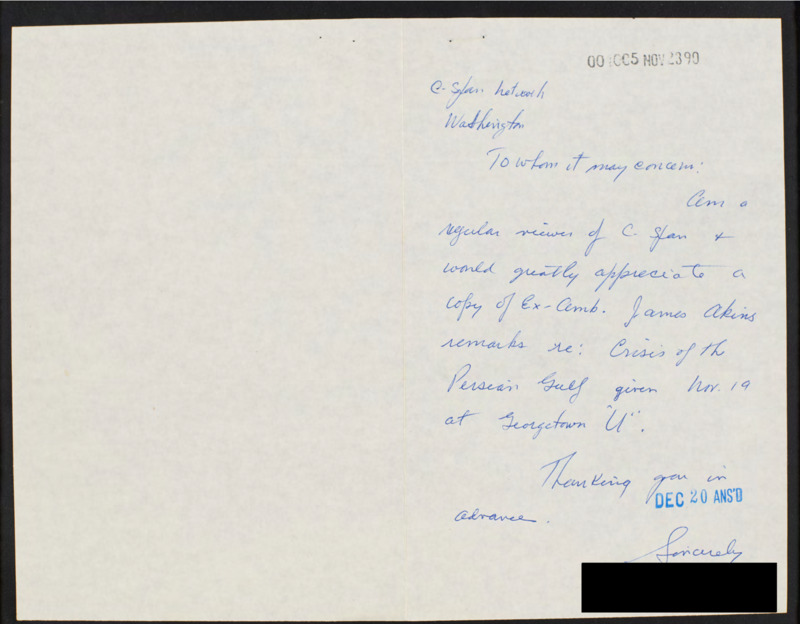 00 1005 NOV 23 90
C-Span Network
Washington
To whom it may concern:
Am a
regular viewer of C-Span +
would greatly appreciate a
copy of Ex-Amb. James Akins
remarks re: Crisis of the
Persian Gulf given Nov. 19
at Georgetown "U".
Thanking you in
DEC 20 ANS'D
advance.
Sincerely